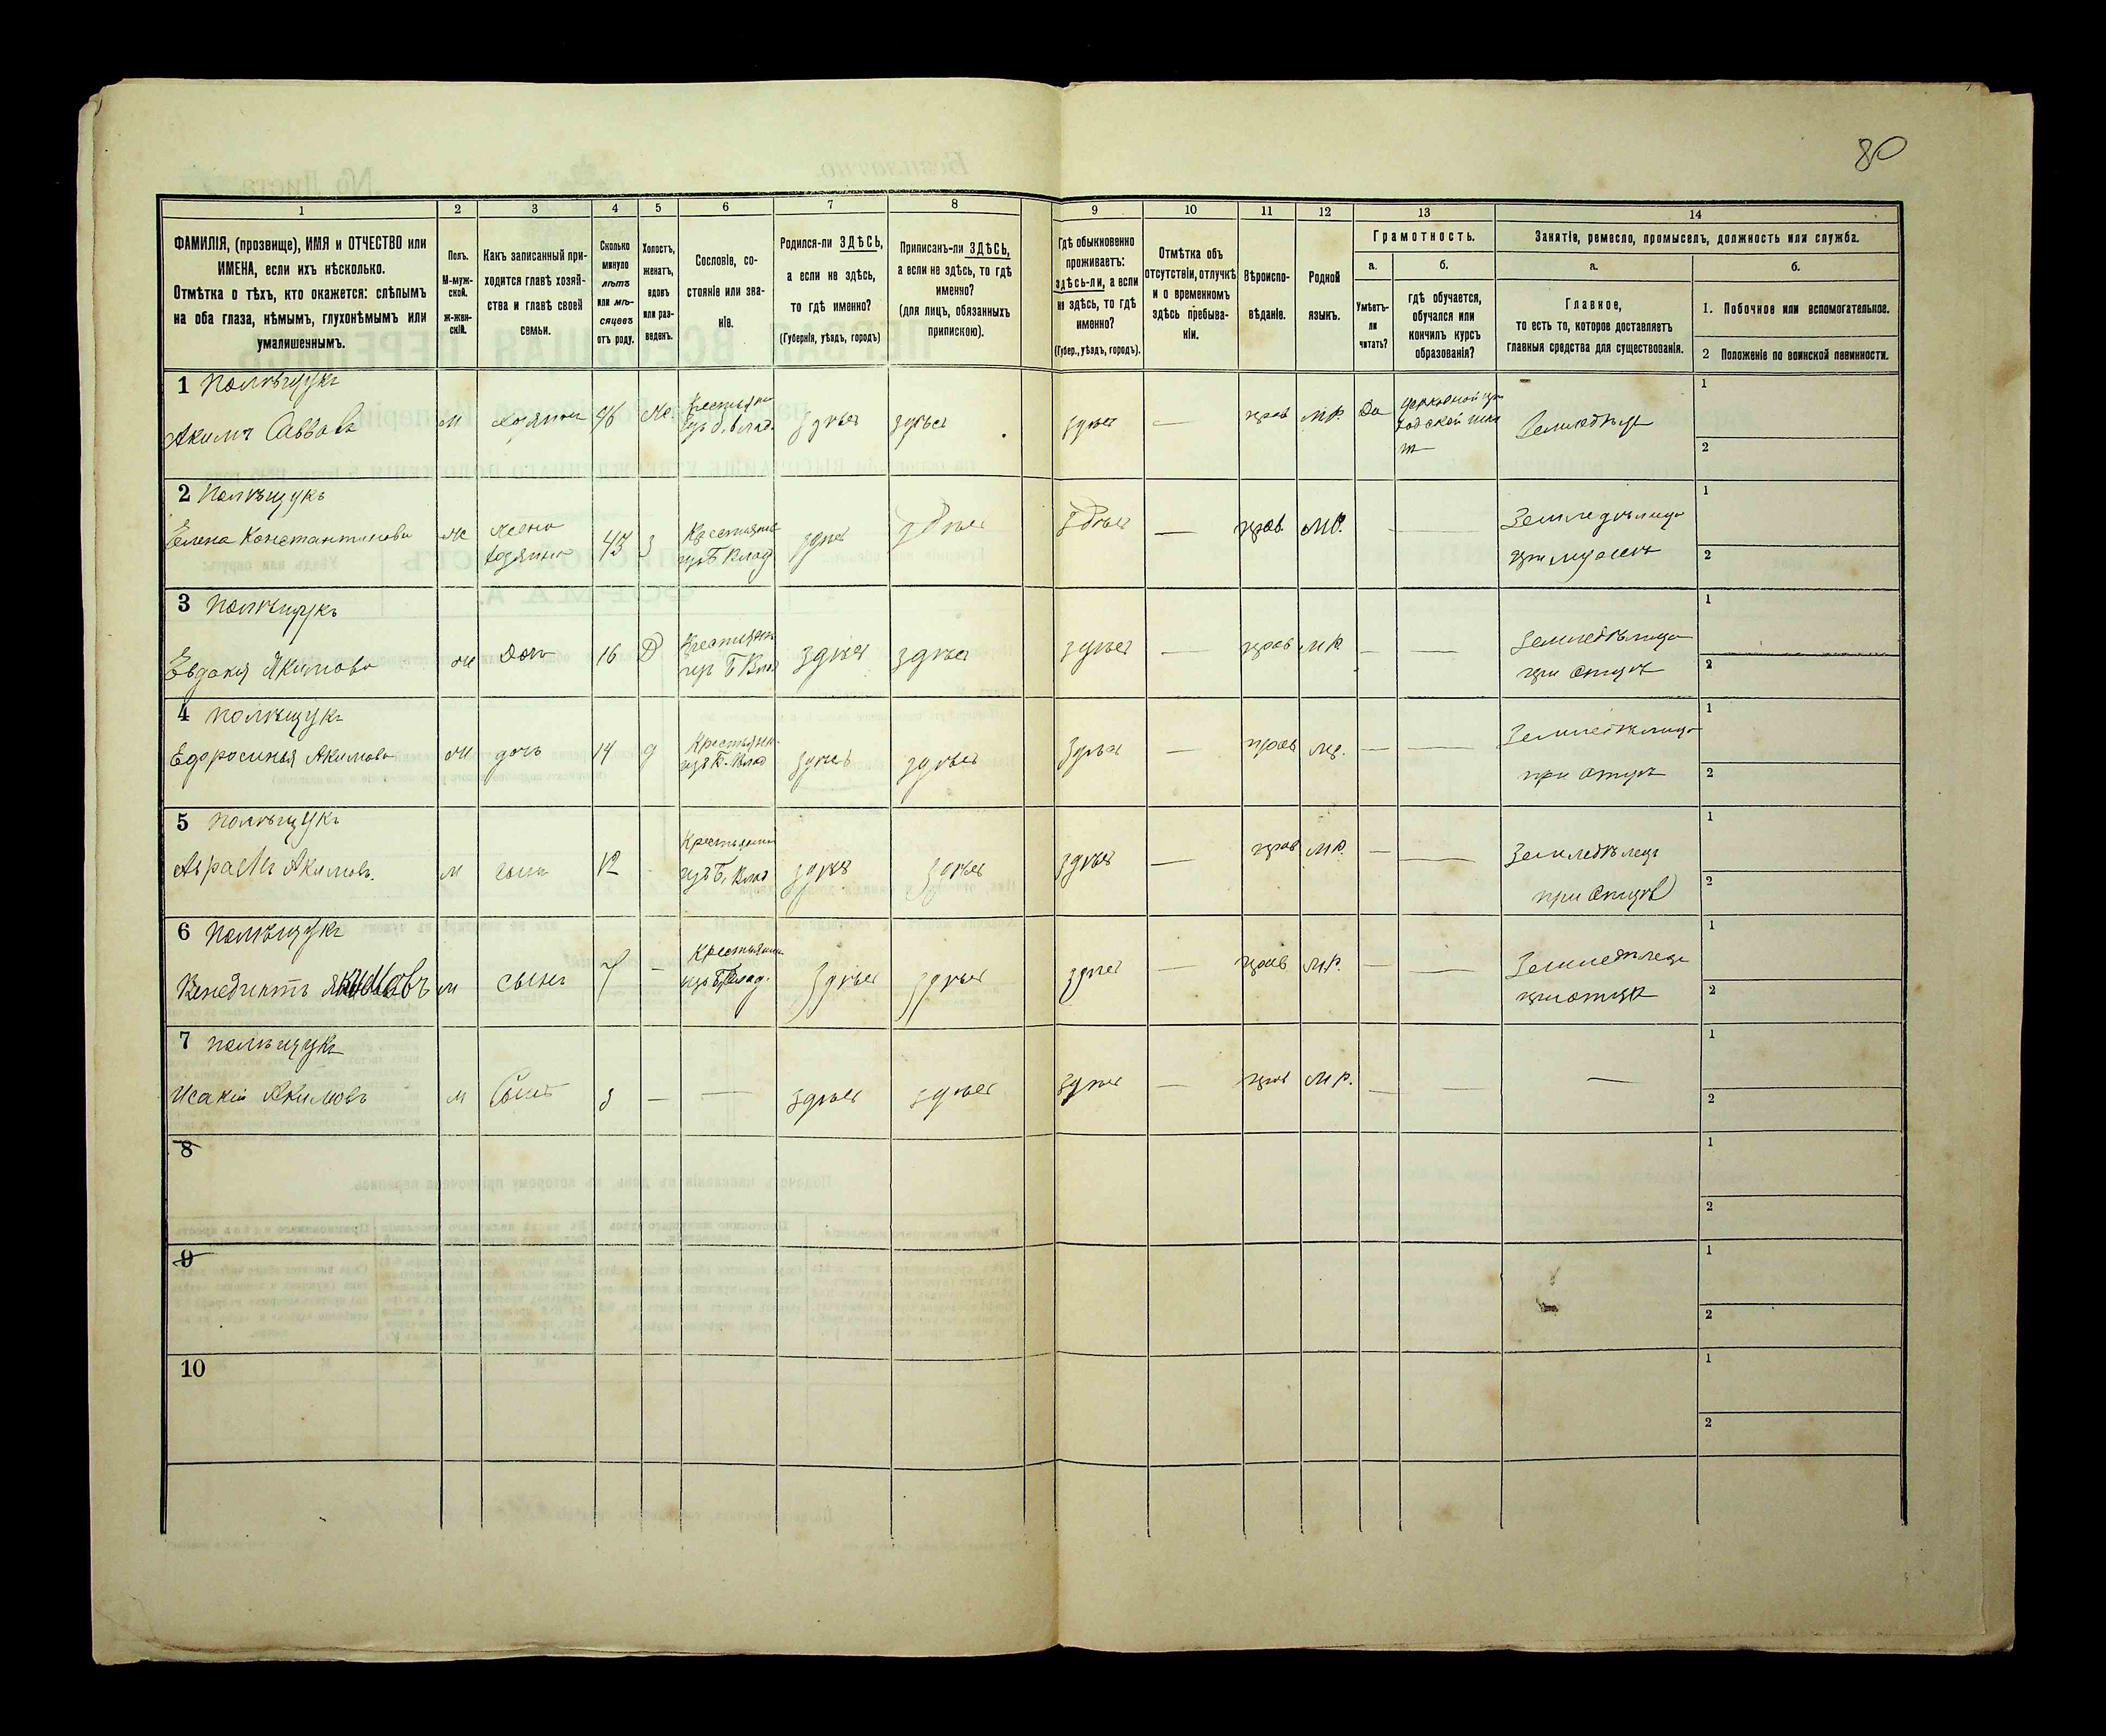 80
1
2
3
4
5
6
7
8
9
10
11
12
13
14
ФАМИЛІЯ, (прозвище), ИМЯ и ОТЧЕСТВО или
ИМЕНА, если ихъ нѣсколько.
Отмѣтка о тѣхъ, кто окажется: слѣпымъ
на оба глаза, нѣмымъ, глухонѣмымъ или
умалишеннымъ.
Полъ.
М-муж-
ской.
ж-жен-
скій.
Какъ записанный при-
ходится главѣ хозяй-
ства и главѣ своей
семьи.
Сколько
минуло
лѣтъ
или мѣ-
сяцевъ
отъ роду.
Холостъ,
женатъ,
вдовъ
или раз-
веденъ.
Сословіе, со-
стояніе или зва-
ніе.
Родился-ли ЗДѢСЬ,
а если не здѣсь,
то гдѣ именно?
(Губернія, уѣздъ, городъ)
Приписанъ-ли ЗДѢСЬ,
а если не здѣсь, то гдѣ
именно?
(для лицъ, обязанныхъ
припискою).
Гдѣ обыкновенно
проживаетъ:
здѣсь-ли, а если
не здѣсь, то гдѣ
именно?
(Губер., уѣздъ, городъ).
Отмѣтка объ
отсутствіи, отлучкѣ
и о временномъ
здѣсь пребыва-
ніи.
Вѣроиспо-
вѣданіе.
Родной
языкъ.
Грамотность.
а.
Умѣетъ-
ли
читать?
б.
гдѣ обучается,
обучался или
кончилъ курсъ
образованія?
Занятіе, ремесло, промыселъ, должность или служба.
а.
Главное,
то есть то, которое доставляетъ
главныя средства для существованія.
б.
1. Побочное или вспомогательное.
2 Положеніе по воинской повинности.
1 Полѣщукъ
Акимъ Саввовъ
м
46
здѣсь
здѣсь
здѣсь
—
прав
М.Р.
Да
1
2
2 Полѣщукъ
Елена Константинова
ж
жена
43
з
изъ Б Влад
здѣсь
здѣсь
здѣсь
—
прав.
М.Р.
—
Земледѣлица
1
2
3 Полѣщукъ
Евдокія Якимова
ж
Дочь
16
Д
изъ Б Влад
здѣсь
здѣсь
здѣсь
—
прав
М Р.
—
—
Земледѣлица
при отцѣ
1
2
4 Полѣщукъ
Ефросинья Акимова
ж
дочь
14
д
Крестьян.
изъ Б. Влад
здѣсь
здѣсь
здѣсь
—
прав
м.р.
—
—
Земледѣлица
при отцѣ
1
2
5 Полѣщукъ
Акимовъ.
м
сынъ
12
-
изъ Б. Влад
здѣсь
здѣсь
здѣсь
—
прав
М.Р.
—
—
Земледѣлецъ
при отцѣ
1
2
6 Полѣщукъ
Венедиктъ Якимовъ
м
сынъ
7
—
изъ Б Влад.
здѣсь
здѣсь
здѣсь
—
прав
М.Р.
—
—
Земледѣлецъ
при отцѣ
1
2
7 Полѣщукъ
Исакій Акимовъ
м
Сынъ
3
—
—
здѣсь
здѣсь
здѣсь
—
прав
М Р.
—
—
—
1
2
8
1
2
9
1
2
10
1
2